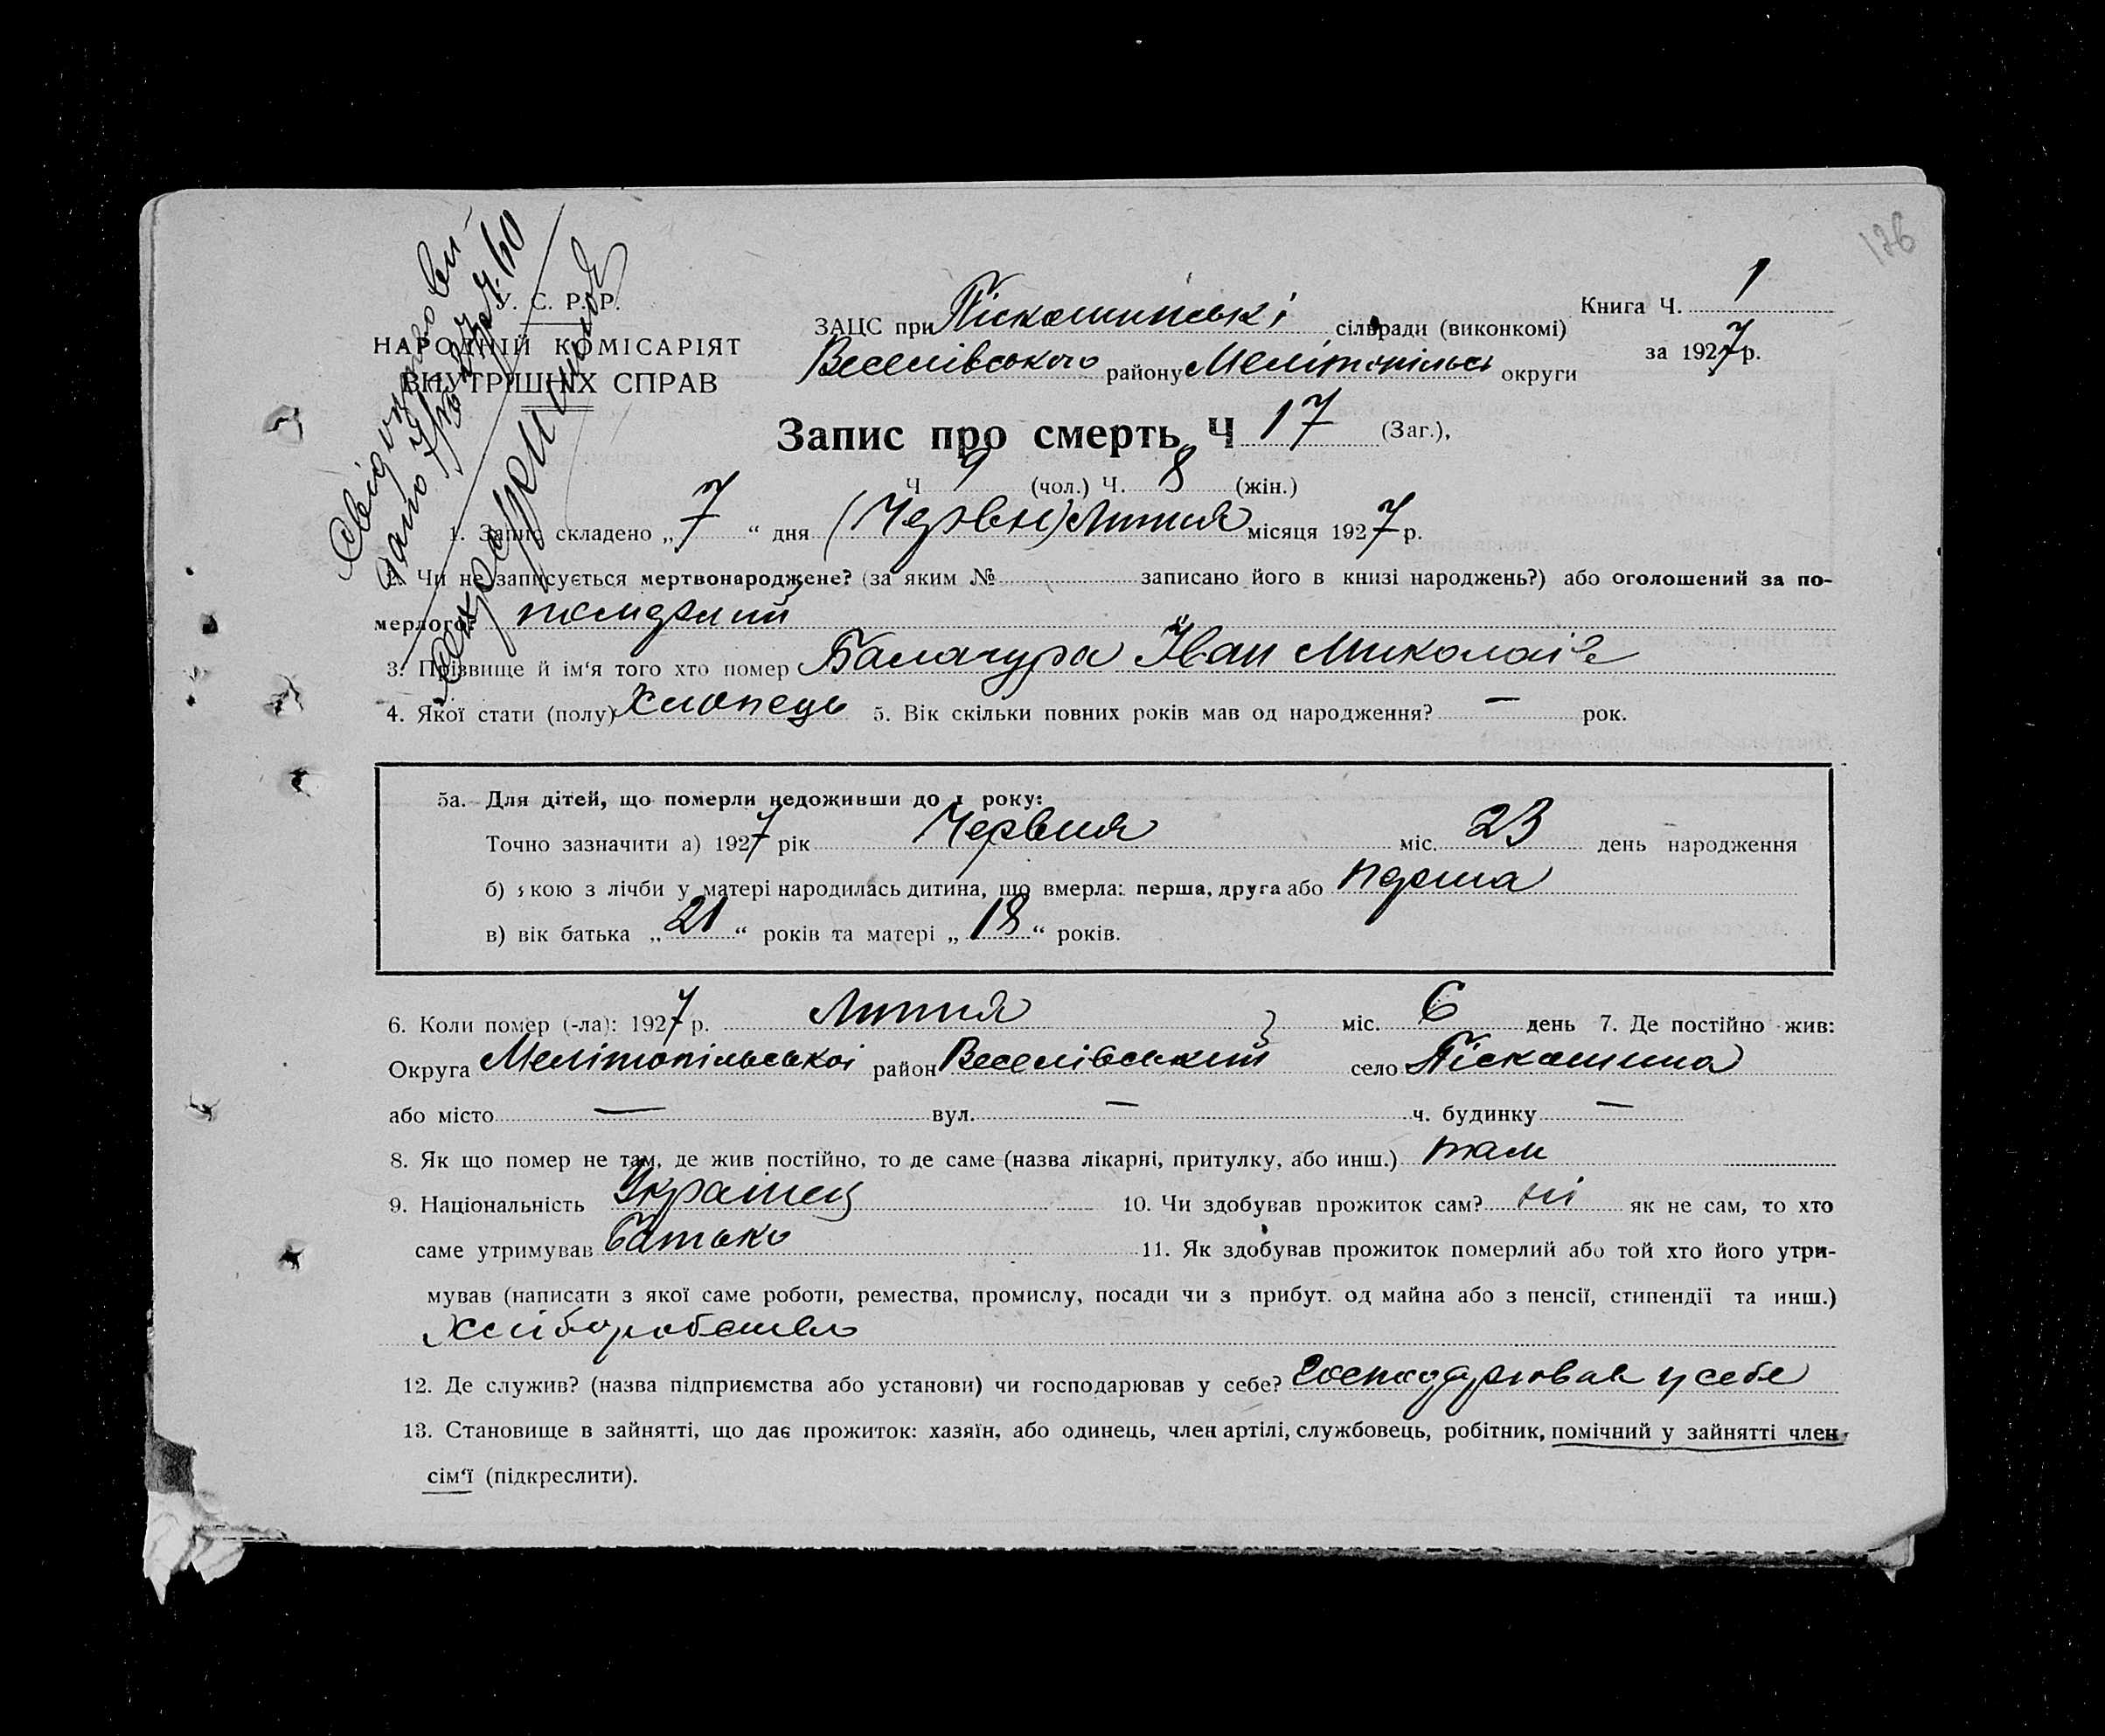 126
У. С. Р. Р.
НАРОДНІЙ КОМІСАРІЯТ
ВНУТРИШНІХ СПРАВ
Книга Ч. 1
за 1927 р.
ЗАЦС при Піскошинські сільради (виконкомі)
Веселівського району Мелітопільсь округи
Запис про смерть Ч 17 (Заг.),
Ч 9 (чол.) Ч. 8 (жін.)
1. Запис складено „7“ дня (Червн) Липня місяця 1927 р.
2. Чи не записується мертвонароджене? (за яким № записано його в книзі народжень?) або оголошений за по-
мерлого? померший
3. Прізвище й ім'я того хто помер Балачура Іван Миколаів
4. Якої стати (полу) Хлопець 5. Вік скільки повних років мав од народження? — рок.
5а. Для дітей, що померли недоживши до 1 року:
Точно зазначити а) 1927 рік Червня міс. 23 день народження
б) якою з лічби у матері народилась дитина, що вмерла: перша, друга або перша
в) вік батька „21“ років та матері „18“ років.
6. Коли помер (-ла): 1927 р. Липня міс. 6 день 7. Де постійно жив:
Округа Мелітопільськоі район Веселівський село Піскошина
або місто — вул. — ч. будинку —
8. Як що помер не там, де жив постійно, то де саме (назва лікарні, притулку, або инш.) там
9. Національність Украінец 10. Чи здобував прожиток сам? ні як не сам, то хто
саме утримував батько 11. Як здобував прожиток померлий або той хто його утри-
мував (написати з якої саме роботи, ремества, промислу, посади чи з прибут. од майна або з пенсії, стипендії та инш.)
Хліборобство
12. Де служив? (назва підприємства або установи) чи господарював у себе? Господарював у себе
13. Становище в зайнятті, що дає прожиток: хазяїн, або одинець, член артілі, службовець, робітник, помічний у зайнятті член
сім'ї (підкреслити).